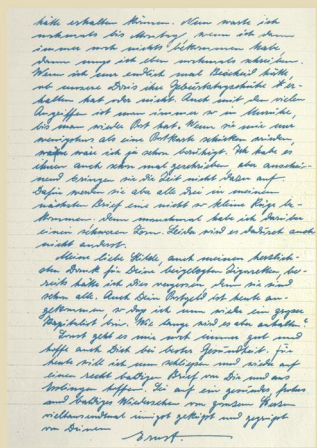 hätte erhalten können. Nun warte ich
nochmals bis Montag, wenn ich dann
immer noch nichts bekommen habe
dann muß ich eben nochmals schreiben.
Wenn ich nur endlich mal Bescheid hätte,
ob unsere Doris ihre Geburtstagsschuhe er-
halten hat oder nicht. Auch mit den vielen
Angriffen ist man immer so in Unruhe,
bis man wieder Post hat. Wenn sie mir nur
wenigstens als eine Postkarte schicken würden
wäre ich ja schon beruhigt. Ich habe es
ihnen auch schon mal geschrieben, aber anschei-
nend bringen sie die Zeit nicht dazu auf.
Dafür werden sie aber alle drei in meinem
nächsten Brief eine nicht so kleine Rüge be-
kommen. Denn manchmal habe ich darüber
einen schweren Zorn. Leider wird es dadurch auch
nicht anders.
Meine liebe Hilde, auch meinen herzlich-
sten Dank für Deine beigelegten Zigaretten, be-
reits hätte ich dies vergessen, denn sie sind
schon alle. Auch Dein Postgeld ist heute an-
gekommen so daß ich nun wieder ein grosser
Kapitalist bin. Wie lange wird es aber anhalten?
Sonst geht es mir noch immer gut und
hoffe auch Dich bei bester Gesundheit. Für
heute will ich nun schliessen und wieder auf
einen recht baldigen Brief von Dir und aus
hoffen. Sei auf ein gesundes frohes
und baldiges Wiedersehen von ganzem Herzen
vieltausendmal innigst gegrüßt und geküßt
von Deinem
Ernst.